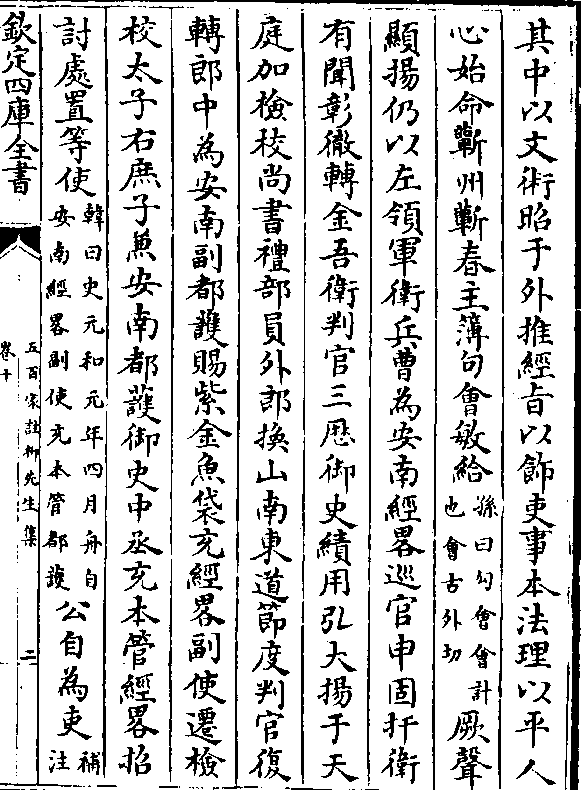 其中以文術昭于外推經旨以飾吏事本法理以平人
心始命蘄州蘄春主簿句會敏給孫曰勾會會計也會古外切厥聲
顯揚仍以左領軍衛兵曹為安南經畧巡官申固扞衛
有聞彰徹轉金吾衛判官三歷御史績用弘大揚于天
庭加檢校尚書禮部員外郎換山南東道節度判官復
轉郎中為安南副都䕶賜紫金魚袋充經畧副使遷檢
校太子右庶子兼安南都䕶御史中丞充本管經畧招
討處置等使韓曰史元和元年四月舟自安南經畧副使充本管都䕶公自為吏補注
欽定四庫全書
五百家註柳先生集
卷十
二